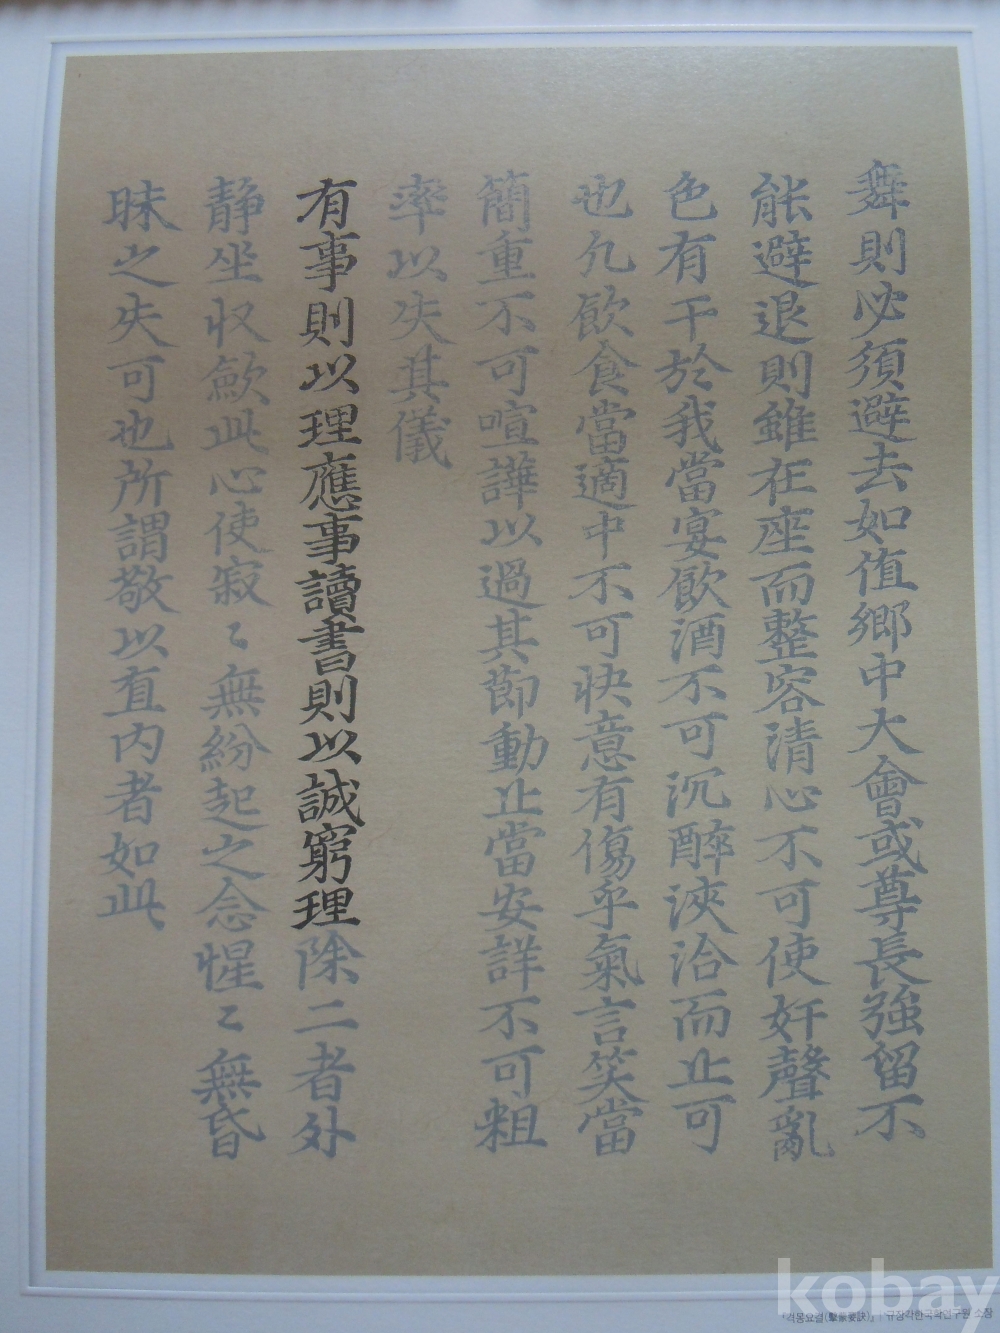 舞則必須避去如值鄉中大會或尊長強留不
能避退則雖在座而整容清心不可使奸聲亂
色有干於我當宴飮酒不可沉醉浹洽而止可
也凡飮食當適中不可快意有傷乎氣言笑當
簡重不可喧譁以過其節動止當安詳不可粗
率以失其儀
有事則以理應事讀書則以誠窮理除二者外
靜坐收歛此心使寂〻無紛起之念惺〻無昏
昧之失可也所謂敬以直内者如此
kobay
『격몽요결(擊蒙要訣)』: 규장각한국학연구원 소장